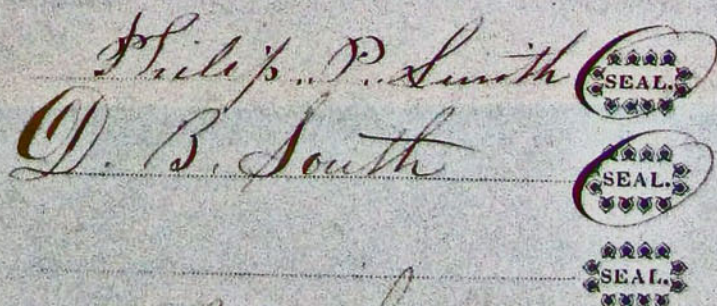 Philip. P. Smith SEAL.
D. B. South SEAL.
SEAL.